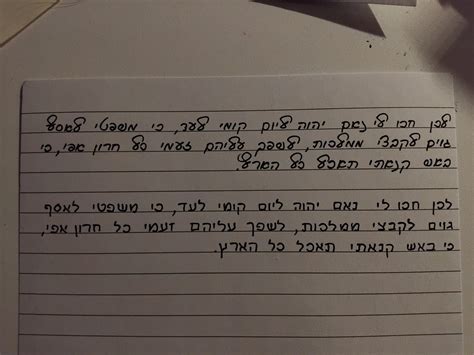 לכן חכו לי נאם יהוה ליום קומי לעד, כי משפטי לאסף
גוים לקבצי ממלכות, לשפך עליהם זעמי כל חרון אפי, כי
באש קנאתי תאכל כל הארץ.
לכן חכו לי נאם יהוה ליום קומי לעד, כי משפטי לאסף
גוים לקבצי ממלכות, לשפך עליהם זעמי כל חרון אפי,
כי באש קנאתי תאכל כל הארץ.